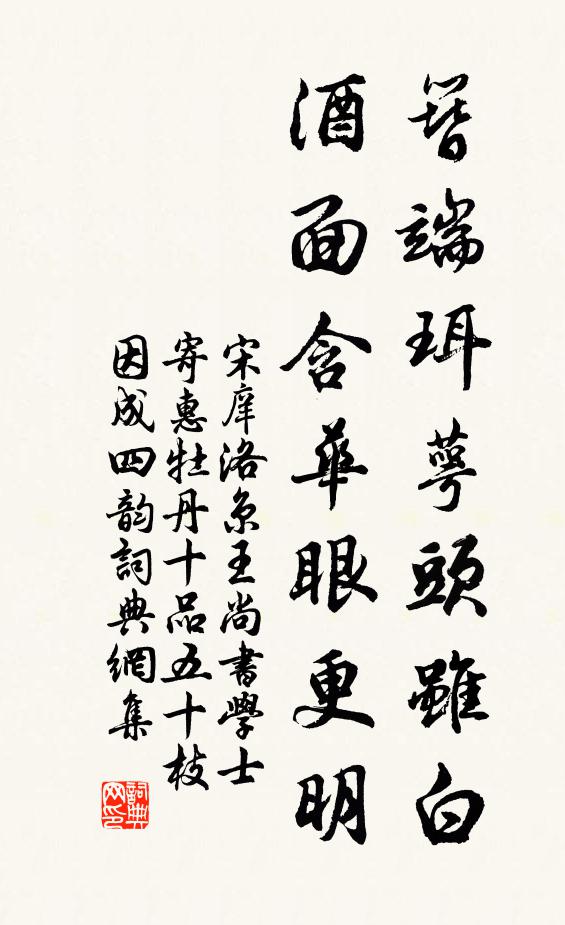 簪端珥萼頭雖白
酒面含華眼更明
宋庠洛京王尚書學士
寄惠牡丹十品五十枝
因成四韵詞典網集
詞典
网印